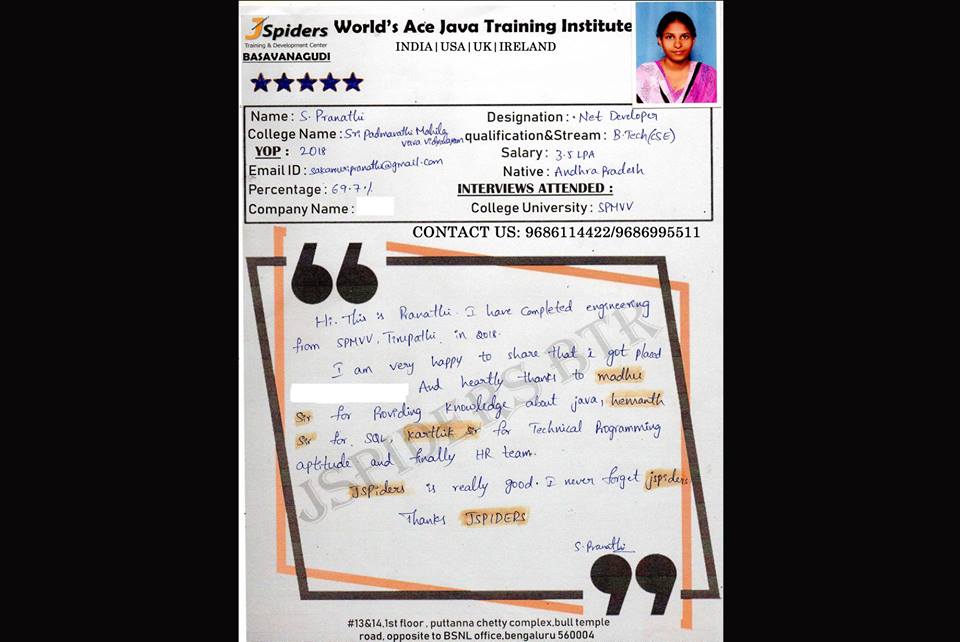 JSpiders World's Ace Java Training Institute
Training & Development Center
INDIA | USA | UK | IRELAND
BASAVANAGUDI
Name : S. Pranathi
Designation : .Net Developer
College Name : Sri Padmavathi Mahila
visva vidyalayam
qualification&Stream : B.Tech(CSE)
YOP : 2018
Salary : 3.5 LPA
Email ID : sakamuripranathi@gmail.com
Native : Andhra Pradesh
Percentage : 69.7%
INTERVIEWS ATTENDED :
Company Name :
College University : SPMVV
CONTACT US: 9686114422/9686995511
Hi. This is Pranathi. I have completed engineering
from SPMVV, Tirupathi, in 2018.
I am very happy to share that i got placed
And heartly thanks to madhu
Sir for Providing knowledge about java, hemanth
Sir for SQL, karthik Sir for Technical Programming
aptitude and finally HR team.
JSPiders is really good. I never forget jspiders
Thanks JSPIDERS
S. Pranathi
JSPIDERS BTR
#13&14,1st floor , puttanna chetty complex,bull temple
road, opposite to BSNL office,bengaluru 560004